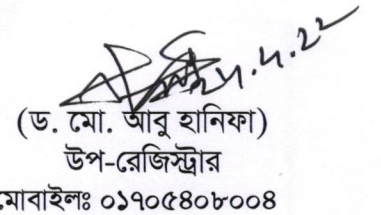 ২৮.৪.২২
(ড. মো. আবু হানিফা)
উপ-রেজিস্ট্রার
মোবাইলঃ ০১৭০৫৪০৮০০৪